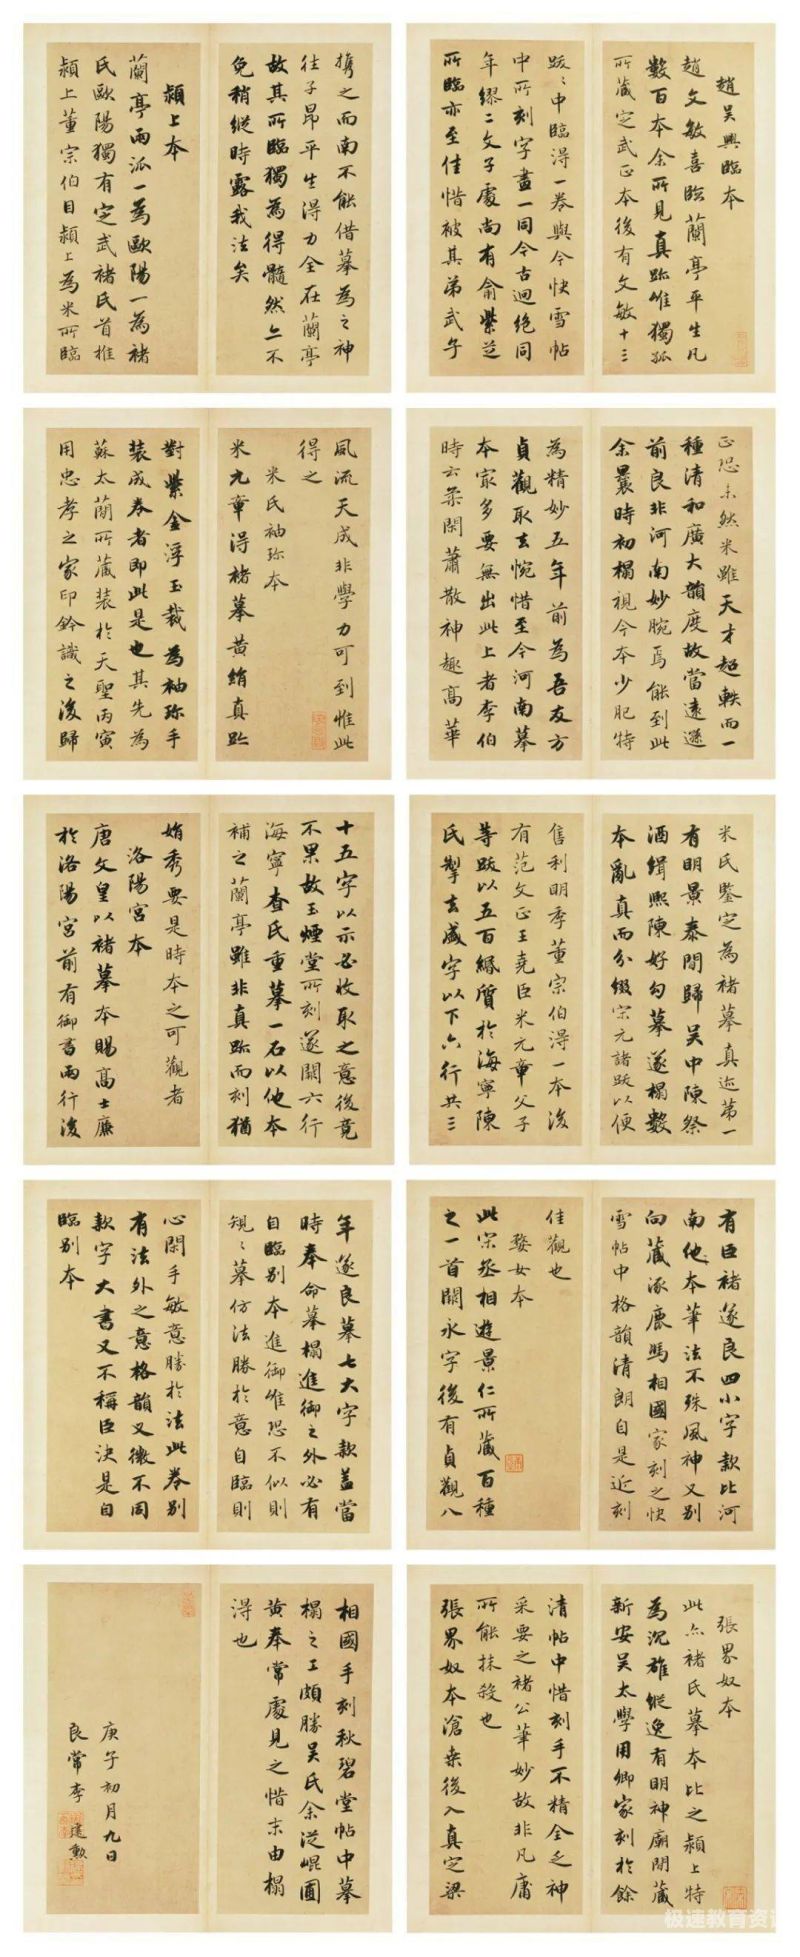 趙吳興臨本
趙文敏喜臨蘭亭平生凡
數百本余所見真跡惟獨孤
所藏定武正本後有文敏十三
跋〻中臨得一卷與今快雪帖
中所刻字畫一同今古迥絕同
年繆二文子處尚有俞紫芝
所臨亦至佳惜被其弟武子
攜之而南不能借摹為之神
往子昂平生得力全在蘭亭
故其所臨獨為得髓然亦不
免稍縱時露我法矣
潁上本
蘭亭兩派一為歐陽一為褚
氏歐陽獨有定武褚氏首推
潁上董宗伯目潁上為米所臨
正恐未然米雖天才超軼而一
種清和廣大韻度故當遠遜
前良非河南妙腕焉能到此
余曩時初榻視今本少肥特
為精妙五年前為吾友方
貞觀取去惋惜至今河南摹
本最多要無出此上者李伯
時云柔閑蕭散神趣高華
風流天成非學力可到惟此
得之
米氏袖珍本
米元章得褚摹黃絹真跡
對紫金浮玉裁為袖珍手
裝成卷者即此是也其先為
蘇太簡所藏裝於天聖丙寅
用忠孝之家印鈐識之後歸
米氏鑒定為褚摹真迹第一
有明景泰間歸吳中陳祭
酒緝熙陳好勾摹遂榻數
本亂真而分綴宋元諸跋以便
售利明季董宗伯得一本後
有范文正王堯臣米元章父子
等跋以五百緡質於海寧陳
氏掣去盛字以下六行共三
十五字以示必收取之意後竟
不果故玉煙堂所刻遂闕六行
海寧查氏重摹一石以他本
補之蘭亭雖非真跡而刻猶
娟秀要是時本之可觀者
洛陽宮本
唐文皇以褚摹本賜高士廉
於洛陽宮前有御書兩行後
有臣褚遂良四小字款比河
南他本華法不殊風神又別
向藏涿鹿馮相國家刻之快
雪帖中格韻清朗自是近刻
佳觀也
婺女本
此宋丞相遊景仁所藏百種
之一首闕永字後有貞觀八
年遂良摹七大字款蓋當
時奉命摹榻進御之外必有
自臨別本進御惟恐不似則
規〻摹仿法勝於意自臨則
心閑手敏意勝於法此卷別
有法外之意格韻又微不同
款字大書又不稱臣決是自
臨別本
張界奴本
此亦褚氏摹本比之潁上特
為沉雄縱逸有明神廟間藏
新安吳太學用卿家刻於餘
清帖中惜刻手不精全乏神
采要之褚公華妙故非凡庸
所能抹殺也
張界奴本滄桑後入真定梁
相國手刻秋碧堂帖中摹
榻之工頗勝吳氏余從崐圃
黃奉常處見之惜未由榻
得也
庚子初月九日
良常李
建勲
極速教育資